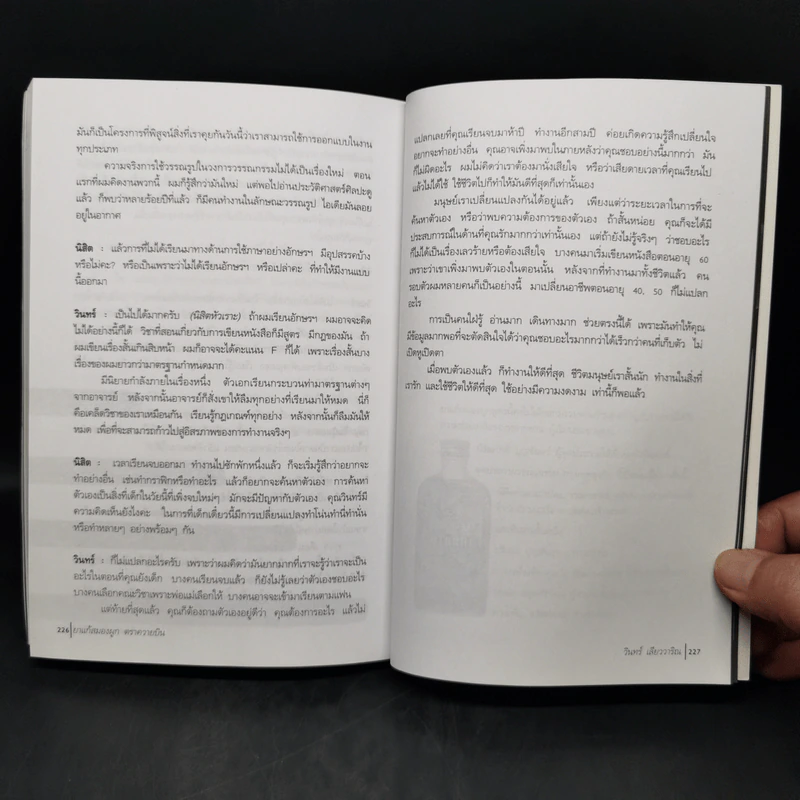 มันก็เป็นโครงการที่พิสูจน์สิ่งที่เราคุยกันวันนี้ว่าเราสามารถใช้การออกแบบในงาน
ทุกประเภท
ความจริงการใช้วรรณรูปในวงการวรรณกรรมไม่ได้เป็นเรื่องใหม่ ตอน
แรกที่ผมคิดงานพวกนี้ ผมก็รู้สึกว่ามันใหม่ แต่พอไปอ่านประวัติศาสตร์ศิลปะดู
แล้ว ก็พบว่าหลายร้อยปีที่แล้ว ก็มีคนทำงานในลักษณะวรรณรูป ไอเดียมันลอย
อยู่ในอากาศ
นิสิต : แล้วการที่ไม่ได้เรียนมาทางด้านการใช้ภาษาอย่างอักษรฯ มีอุปสรรคบ้าง
หรือไม่คะ? หรือเป็นเพราะว่าไม่ได้เรียนอักษรฯ หรือเปล่าคะ ที่ทำให้มีงานแบบ
นี้ออกมา
วินทร์ : เป็นไปได้มากครับ (นิสิตหัวเราะ) ถ้าผมเรียนอักษรฯ ผมอาจจะคิด
ไม่ได้อย่างนี้ก็ได้ วิชาที่สอนเกี่ยวกับการเขียนหนังสือก็มีสูตร มีกฎของมัน ถ้า
ผมเขียนเรื่องสั้นเกินสิบหน้า ผมก็อาจจะได้คะแนน F ก็ได้ เพราะเรื่องสั้นบาง
เรื่องของผมยาวกว่ามาตรฐานกำหนดมาก
มีนิยายกำลังภายในเรื่องหนึ่ง ตัวเอกเรียนกระบวนท่ามาตรฐานต่างๆ
จากอาจารย์ หลังจากนั้นอาจารย์ก็สั่งเขาให้ลืมทุกอย่างที่เรียนมาให้หมด นี่ก็
คือเคล็ดวิชาของเราเหมือนกัน เรียนรู้กฎเกณฑ์ทุกอย่าง หลังจากนั้นก็ลืมมันให้
หมด เพื่อที่จะสามารถก้าวไปสู่อิสรภาพของการทำงานจริงๆ
นิสิต : เวลาเรียนจบออกมา ทำงานไปซักพักหนึ่งแล้ว ก็จะเริ่มรู้สึกว่าอยากจะ
ทำอย่างอื่น เช่นทำกราฟิกหรือทำอะไร แล้วก็อยากจะค้นหาตัวเอง การค้นหา
ตัวเองเป็นสิ่งที่เด็กในวัยนี้ที่เพิ่งจบใหม่ๆ มักจะมีปัญหากับตัวเอง คุณวินทร์มี
ความคิดเห็นยังไงคะ ในการที่เด็กเดี๋ยวนี้มีการเปลี่ยนแปลงทำโน่นทำนี่ทำนั่น
หรือทำหลายๆ อย่างพร้อมๆ กัน
วินทร์ : ก็ไม่แปลกอะไรครับ เพราะว่าผมคิดว่ามันยากมากที่เราจะรู้ว่าเราจะเป็น
อะไรในตอนที่คุณยังเด็ก บางคนเรียนจบแล้ว ก็ยังไม่รู้เลยว่าตัวเองชอบอะไร
บางคนเลือกคณะวิชาเพราะพ่อแม่เลือกให้ บางคนอาจจะเข้ามาเรียนตามแฟน
แต่ท้ายที่สุดแล้ว คุณก็ต้องถามตัวเองอยู่ดีว่า คุณต้องการอะไร แล้วไม่
226 ยาแก้สมองผูก ตราควายบิน
แปลกเลยที่คุณเรียนจบมาห้าปี ทำงานอีกสามปี ค่อยเกิดความรู้สึกเปลี่ยนใจ
อยากจะทำอย่างอื่น คุณอาจเพิ่งมาพบในภายหลังว่าคุณชอบอย่างนี้มากกว่า มัน
ก็ไม่ผิดอะไร ผมไม่คิดว่าเราต้องมานั่งเสียใจ หรือว่าเสียดายเวลาที่คุณเรียนไป
แล้วไม่ได้ใช้ ใช้ชีวิตไปก็ทำให้มันดีที่สุดก็เท่านั้นเอง
มนุษย์เราเปลี่ยนแปลงกันได้อยู่แล้ว เพียงแต่ว่าระยะเวลาในการที่จะ
ค้นหาตัวเอง หรือว่าพบความต้องการของตัวเอง ถ้าสั้นหน่อย คุณก็จะได้มี
ประสบการณ์ในด้านที่คุณรักมากกว่าเท่านั้นเอง แต่ถ้ายังไม่รู้จริงๆ ว่าชอบอะไร
ก็ไม่ได้เป็นเรื่องเลวร้ายหรือต้องเสียใจ บางคนมาเริ่มเขียนหนังสือตอนอายุ 60
เพราะว่าเขาเพิ่งมาพบตัวเองในตอนนั้น หลังจากที่ทำงานมาทั้งชีวิตแล้ว คน
รอบตัวผมหลายคนก็เป็นอย่างนี้ มาเปลี่ยนอาชีพตอนอายุ 40, 50 ก็ไม่แปลก
อะไร
การเป็นคนใฝ่รู้ อ่านมาก เดินทางมาก ช่วยตรงนี้ได้ เพราะมันทำให้คุณ
มีข้อมูลมากพอที่จะตัดสินใจได้ว่าคุณชอบอะไรมากกว่าได้เร็วกว่าคนที่เก็บตัว ไม่
เปิดหูเปิดตา
เมื่อพบตัวเองแล้ว ก็ทำงานให้ดีที่สุด ชีวิตมนุษย์เราสั้นนัก ทำงานในสิ่งที่
เรารัก และใช้ชีวิตให้ดีที่สุด ใช้อย่างมีความงดงาม เท่านี้ก็พอแล้ว
วินทร์ เลียววาริณ 227